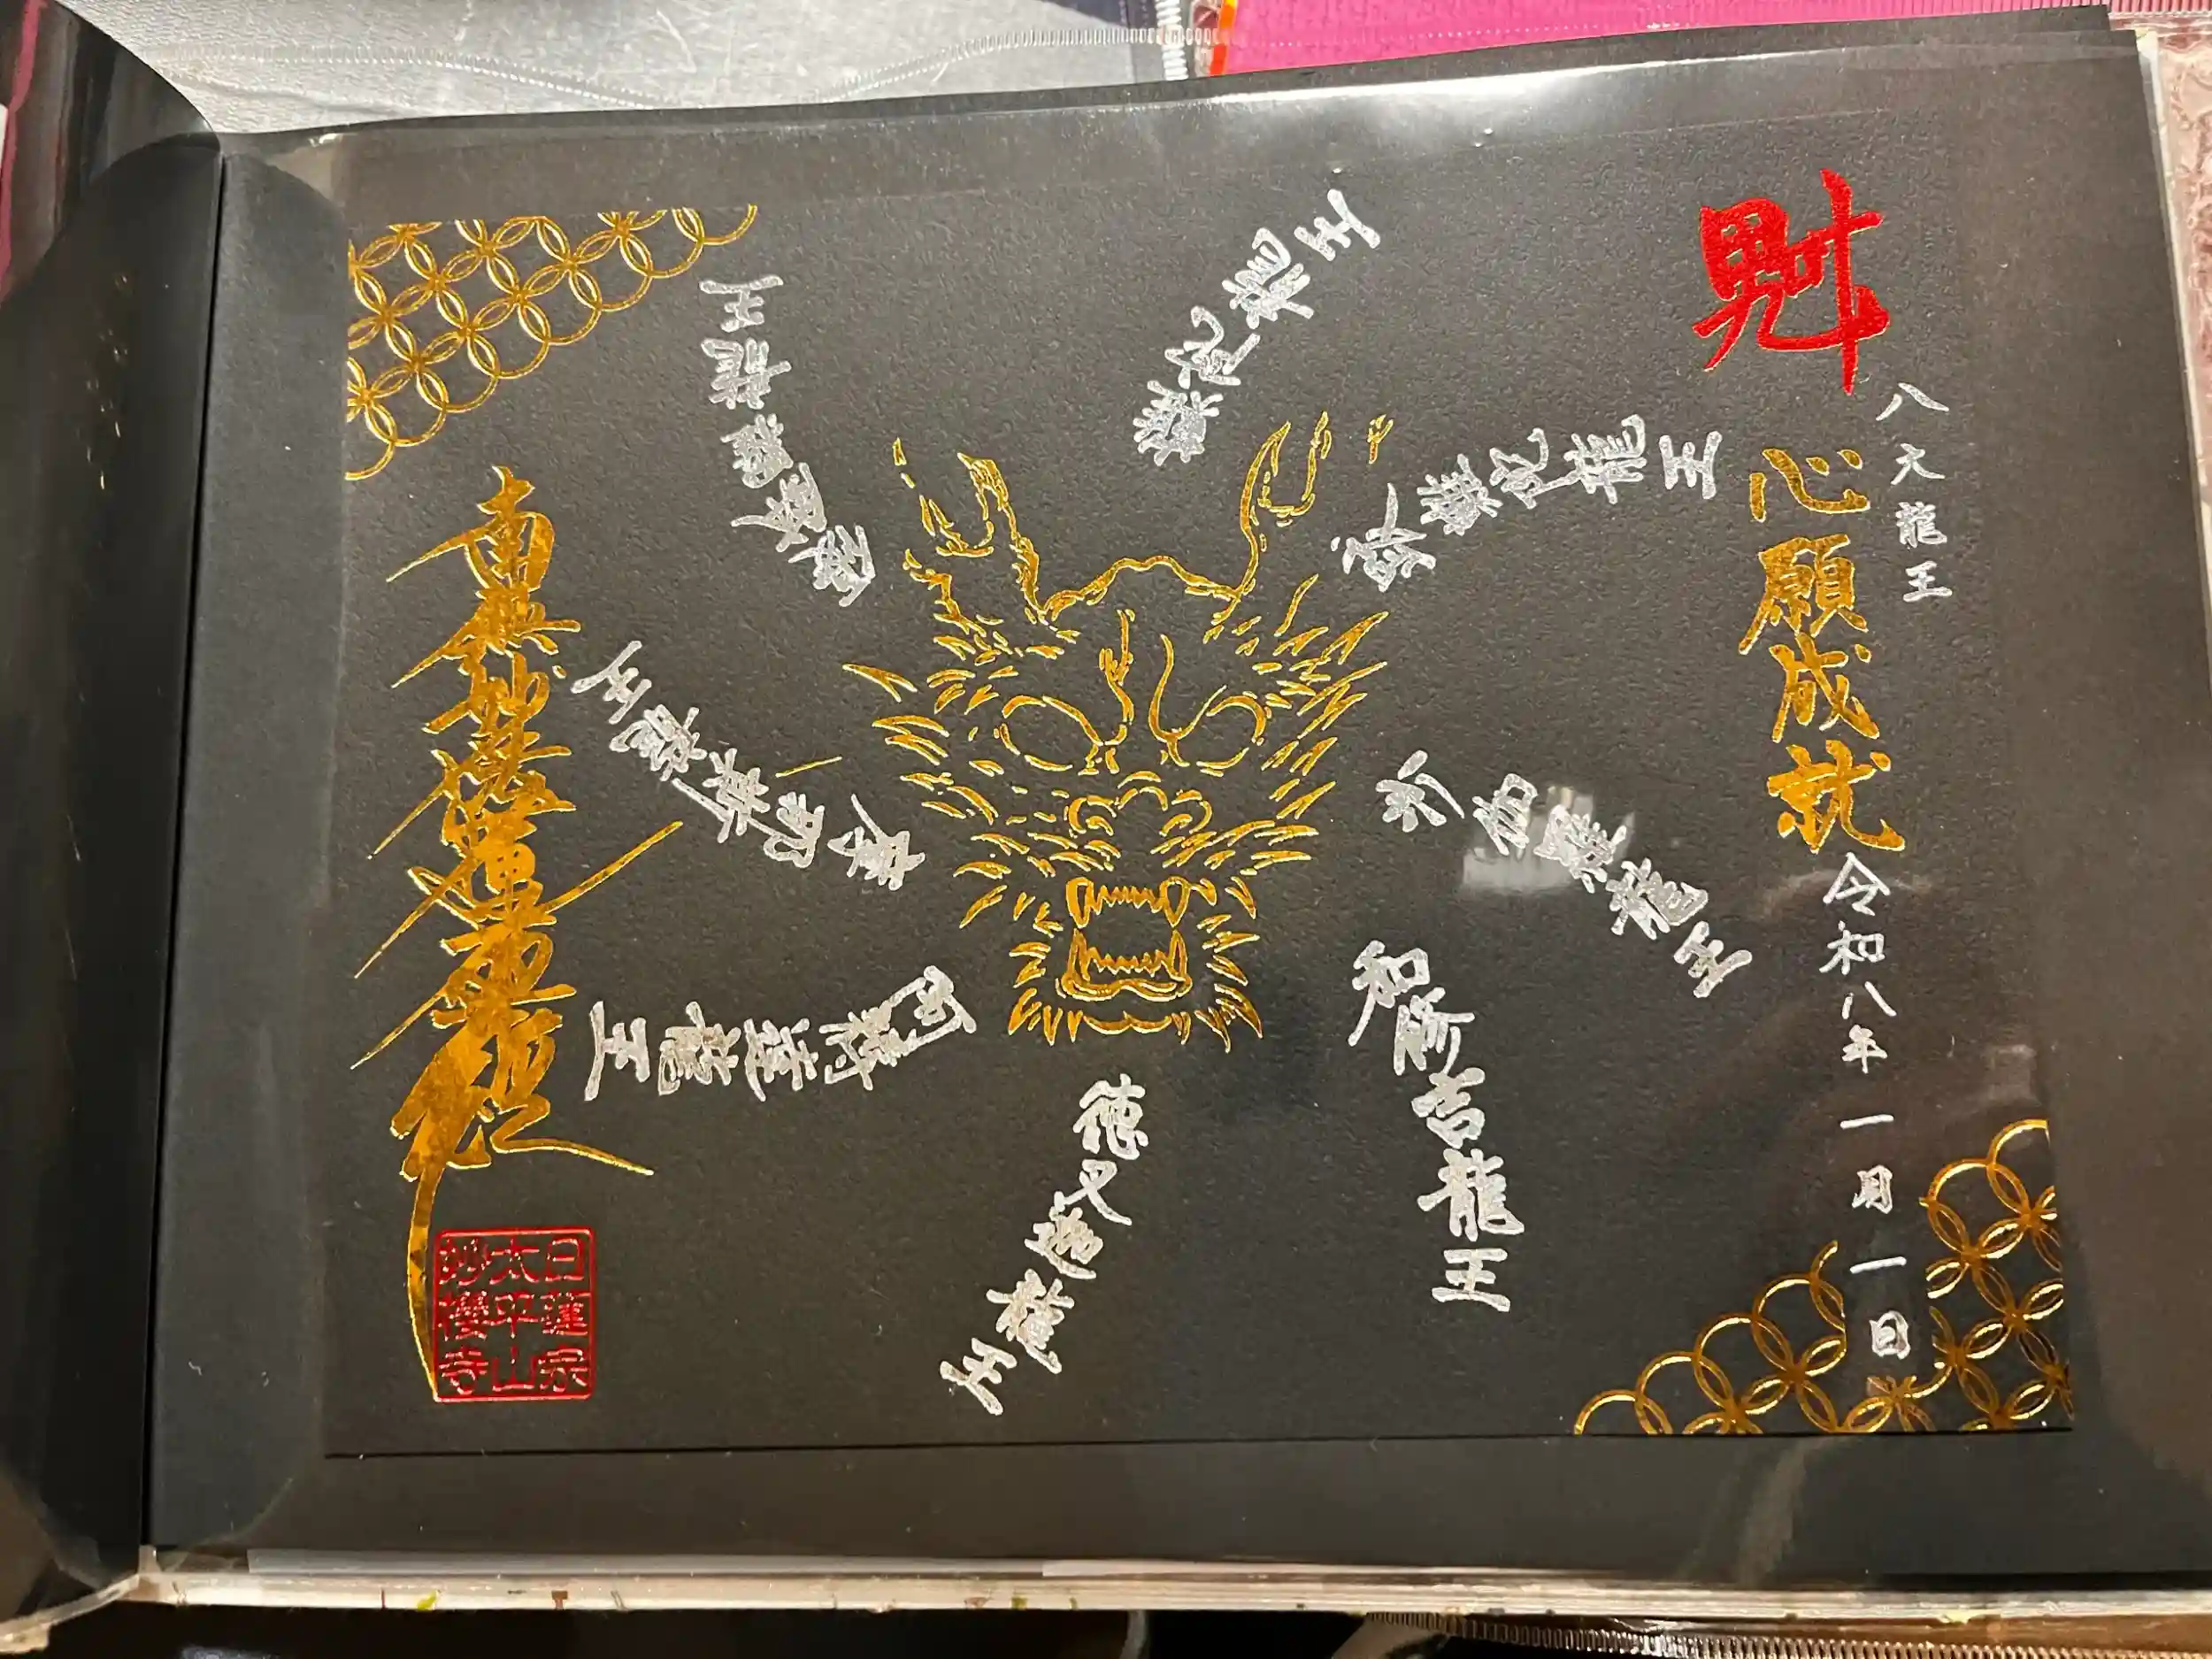 魁
八大龍王
心願成就
令和八年一月一日
難陀龍王
跋難陀龍王
沙伽羅龍王
和修吉龍王
徳叉迦龍王
阿耨達龍王
摩那斯龍王
南無妙法蓮華経
日蓮宗
太平山
妙櫻寺